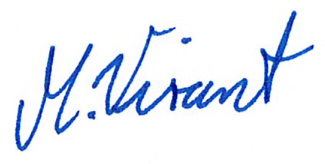 M. Virant